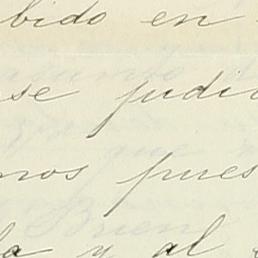 bido en
se judi
mos pues
la y al